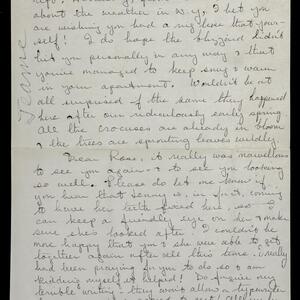 about the weather in N.Y., I bet you
are wishing you had a nig
self! I do hope the blizzard didn't
hit you personally in any way & that
you've managed to keep snug & warm
in your apartment. Wouldn't be at
all surprised if the same thing happened
here after our ridiculously early spring.
All the crocuses are already in bloom
& the trees are sprouting leaves wildly.
Dear Rose, it really was marvellous
to see you again & to see you looking
so well. Please do let me know if
you hear that is, in fact, coming
to have her teeth fixed here, so I
can keep a friendly eye on her & make
sure she's looked after. I couldn't be
more happy that you & she were able to get
together again after all this time. I really
had been praying for you to do so & am
kidding myself it helped! Do forgive my
terrible writing - they won't allow a typewriter